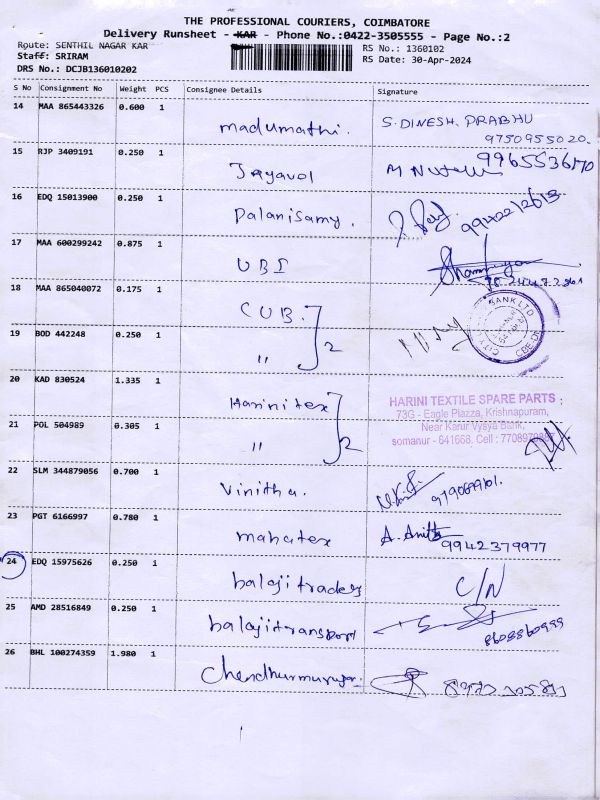 THE PROFESSIONAL COURIERS, COIMBATORE
Delivery Runsheet - KAR - Phone No.:0422-3505555 - Page No.:2
Route: SENTHIL NAGAR KAR
RS No.: 1360102
Staff: SRIRAM
RS Date: 30-Apr-2024
DRS No.: DCJB136010202
S No Consignment No Weight PCS Consignee Details Signature
14 MAA 865443326 0.600 1 madumathi. S. DINESH. PRABHU
9750955020.
15 RJP 3409191 0.250 1 Jayavol 9965536170
16 EDQ 15013900 0.250 1 Palanisamy.
17 MAA 600299242 0.875 1 UBI
18 MAA 865040072 0.175 1 CUB. 2
BANK LTD
CITY
19 BOD 442248 0.250 1 "
20 KAD 830524 1.335 1 Harinitex 2
HARINI TEXTILE SPARE PARTS
73G - Eagle Plazza, Krishnapuram,
21 POL 504989 0.305 1 "
Near Karur Vysya Bank,
somanur - 641668, Cell :
22 SLM 344879056 0.700 1 Vinitha.
23 PGT 6166997 0.780 1 mahatex A. Anitha
9942379977
24 EDQ 15975626 0.250 1 balaji traders C/N
25 AMD 28516849 0.250 1 balajitransport
8608860999
26 BHL 100274359 1.980 1 Chendhurmurugan